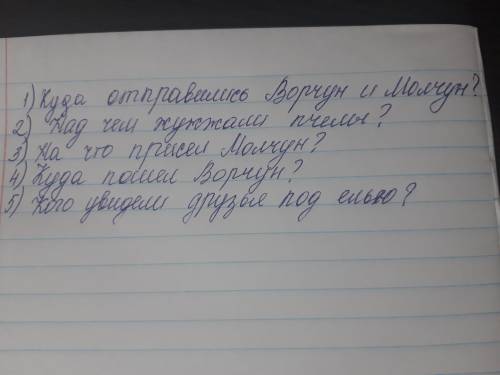 1) Куда отправились Ворчун и Молчун?
2) Над чем жужжали пчелы?
3) На что присел Молчун?
4) Куда пошел Ворчун?
5) Кого увидели друзья под елью?